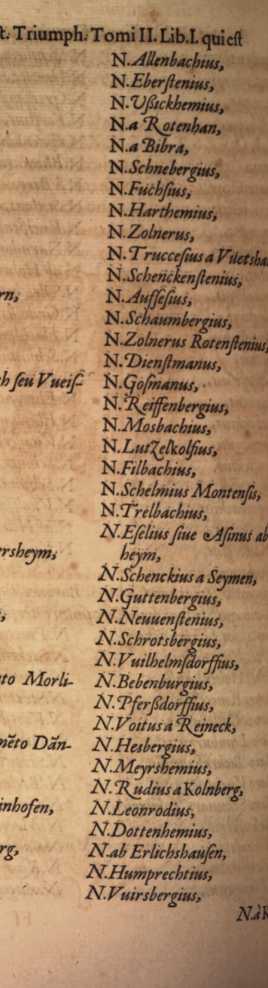 Triumph. Tomi II. Lib.I. qui eſt
N. Allenbachius,
N. Eberſtenius,
N. Vßickhemius,
N. a Rotenhan,
N. a Bibra,
N. Schnebergius,
N. Fuchſius,
N. Harthemius,
N. Zolnerus,
N. Truccefius a Vuetsha
N. Schenckenſtenius,
rn,
N. Auffeſius,
N. Schaumbergius,
N. Zolnerus Rotenſtenius,
N. Dienſtmanus,
ch ſeu Vueiſ-
N. Goſmanus,
N. Reiffenbergius,
N. Mosbachius,
N. Lutzelkolfius,
N. Filbachius,
N. Schelmius Montenſis,
N. Trelbachius,
N. Eſelius ſiue Aſinus ab
ersheym,
heym,
N. Schenckius a Seymen,
N. Guttenbergius,
N. Neuuenſtenius,
N. Schrotsbergius,
N. Vuilhelmſdorffius,
to Morli-
N. Bebenburgius,
N. Pferßdorffius,
N. Voitus a Reineck,
mēto Dān-
N. Hesbergius,
N. Meyrshemius,
N. Rudius a Kolnberg,
inhofen,
N. Leonrodius,
N. Dottenhemius,
rg,
N. ab Erlichshauſen,
N. Humprechtius,
N. Vuirsbergius,
N. à K